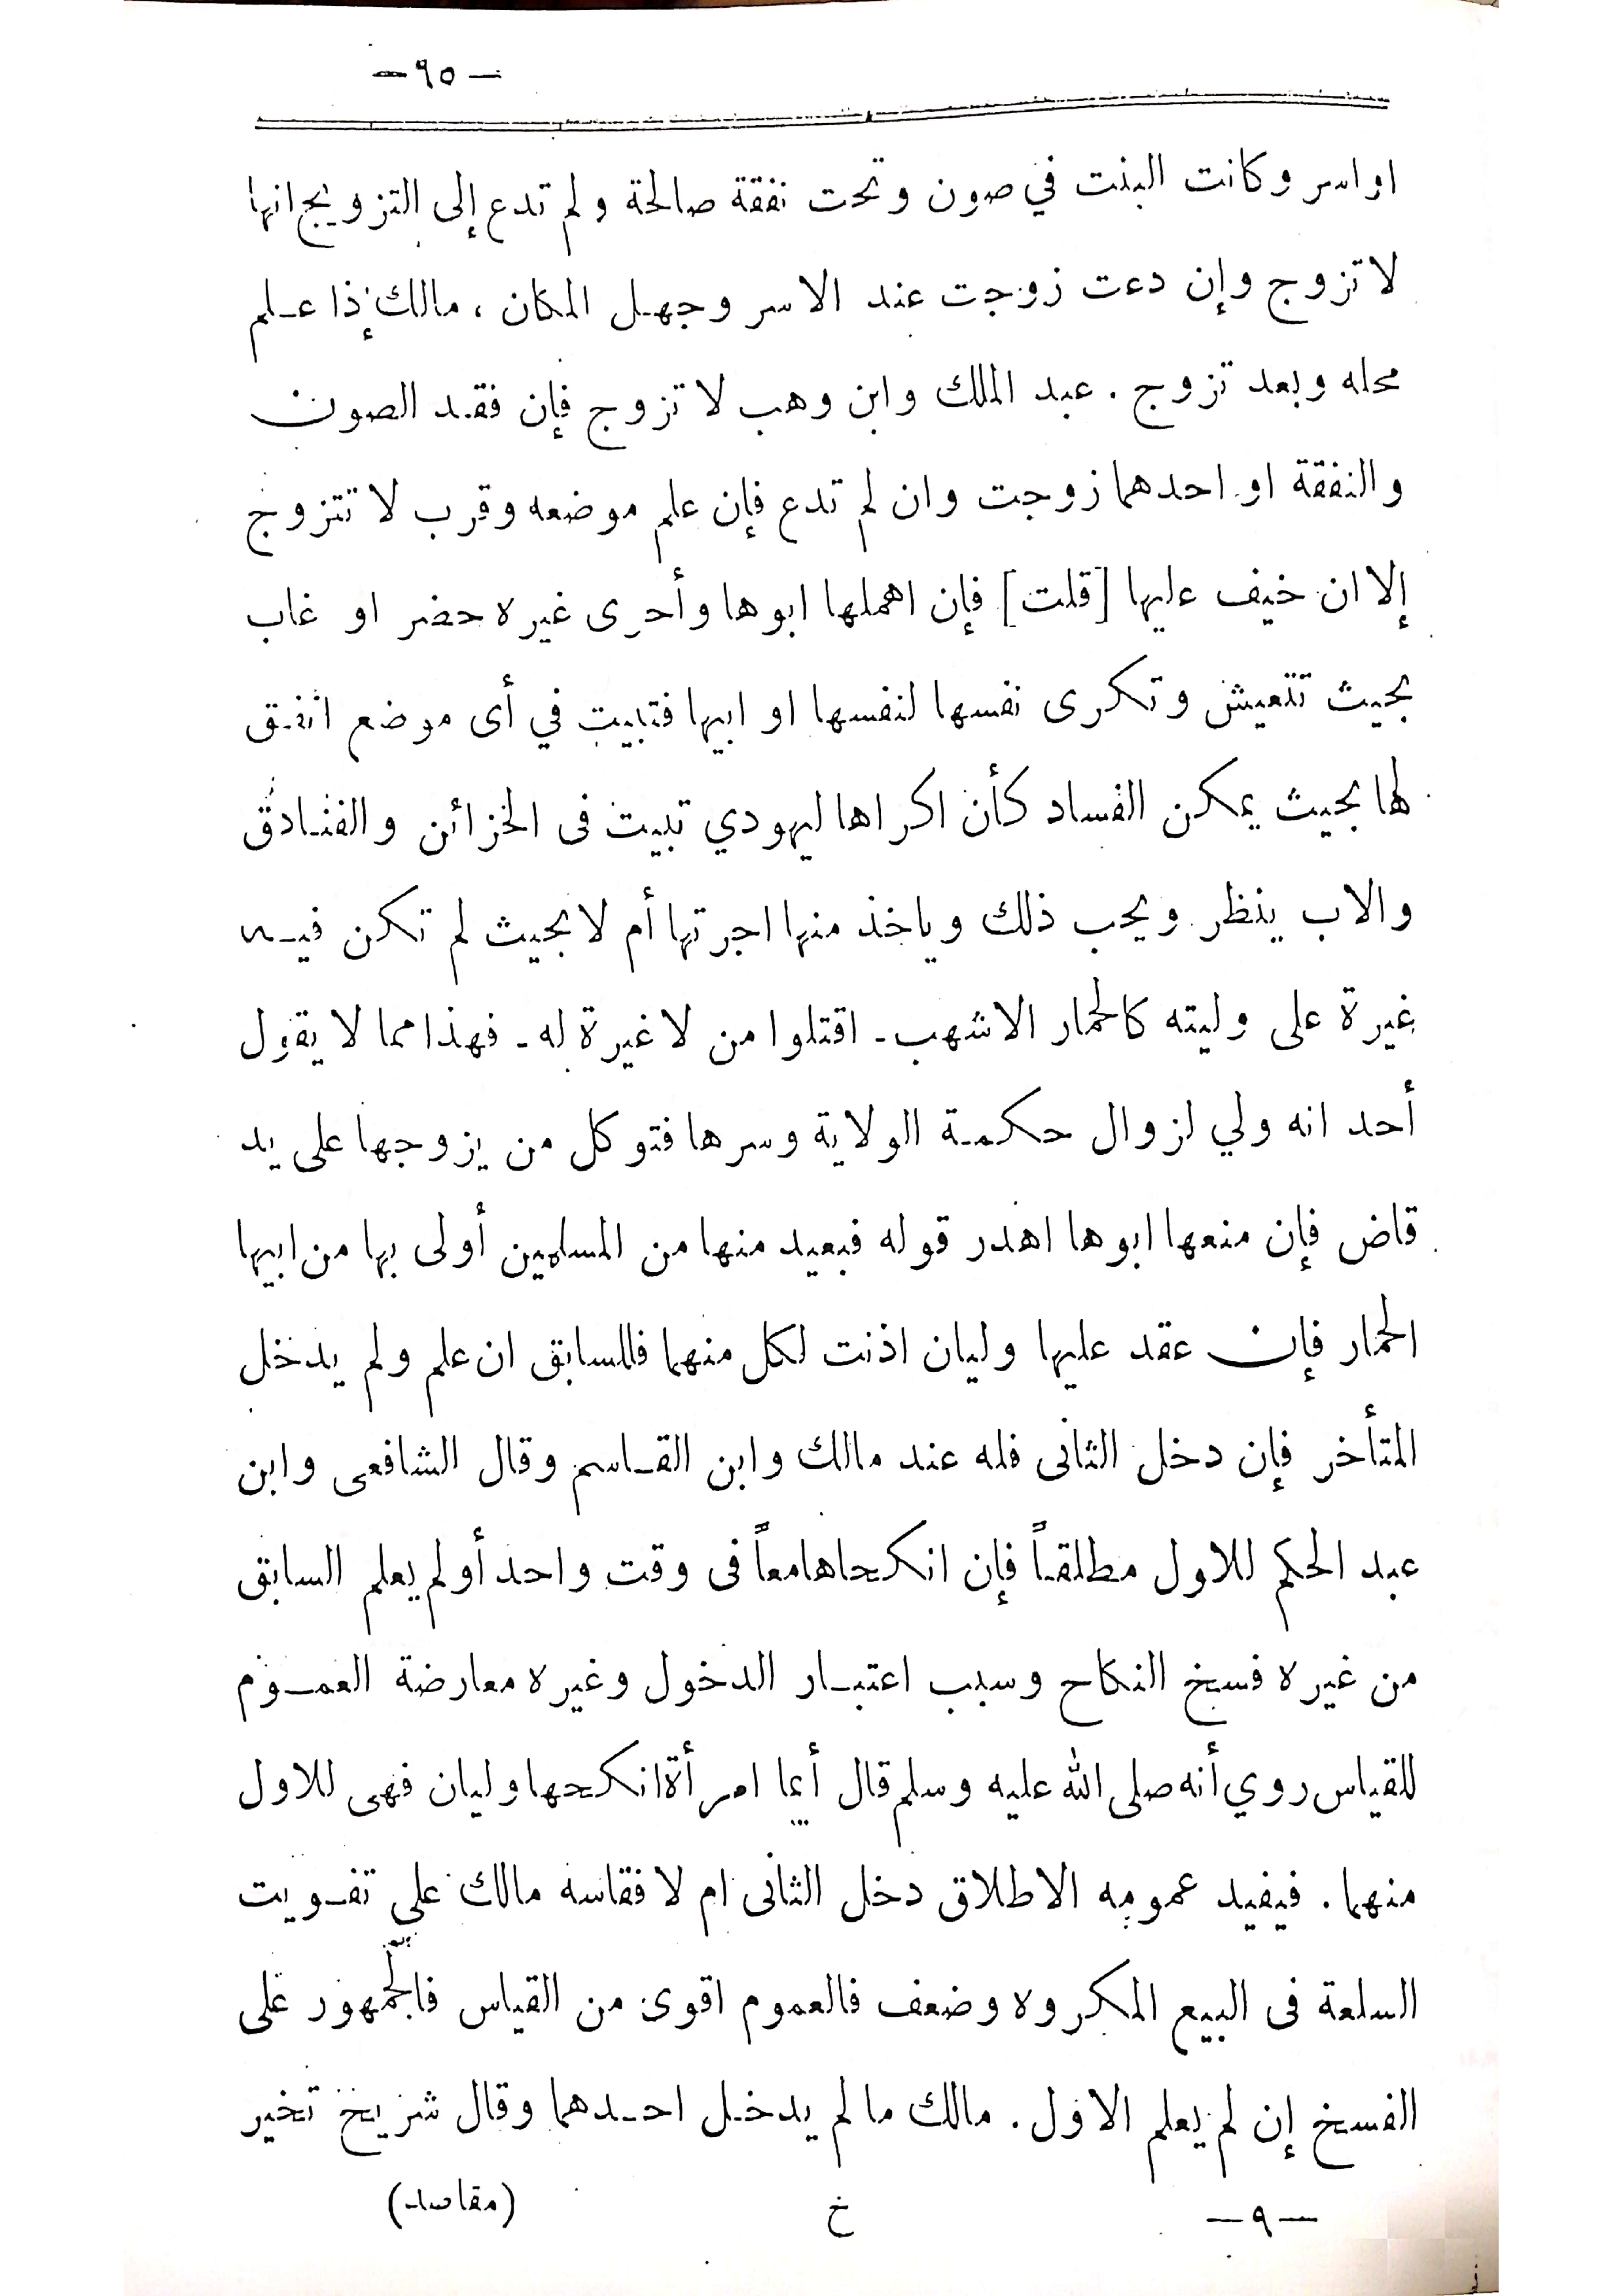 — ٩٥ —
او اسر وكانت البنت في صون وتحت نفقة صالحة ولم تدع إلى التزويج انها
لا تزوج وإن دعت زوجت عند الاسر وجهل المكان ، مالك إذا علم
محله وبعد تزوج . عبد الملك وابن وهب لا تزوج فإن فقد الصون
والنفقة او احدهما زوجت وان لم تدع فإن علم موضعه وقرب لا تتزوج
إلا ان خيف عليها [قلت] فإن اهملها ابوها وأحرى غيره حضر او غاب
بحيث تتعيش وتكرى نفسها لنفسها او ابيها فتبيت في أى موضع اتفق
لها بحيث يمكن الفساد كأن اكراها ليهودي تبيت فى الخزائن والفنادق
والاب ينظر ويحب ذلك وياخذ منها اجرتها أم لا بحيث لم تكن فيه
غيرة على وليته كالحمار الاشهب - اقتلوا من لا غيرة له - فهذا مما لا يقول
أحد انه ولي لزوال حكمة الولاية وسرها فتوكل من يزوجها على يد
قاض فإن منعها ابوها اهدر قوله فبعيد منها من المسلمين أولى بها من ابيها
الحمار فإن عقد عليها وليان اذنت لكل منهما فللسابق ان علم ولم يدخل
المتأخر فإن دخل الثانى فله عند مالك وابن القاسم وقال الشافعى وابن
عبد الحكم للاول مطلقاً فإن انكحاها معاً فى وقت واحد أو لم يعلم السابق
من غيره فسخ النكاح وسبب اعتبار الدخول وغيره معارضة العموم
للقياس روي أنه صلى الله عليه وسلم قال أيما امرأة انكحها وليان فهى للاول
منهما . فيفيد عمومه الاطلاق دخل الثانى ام لا فقاسه مالك على تفويت
السلعة فى البيع المكروه وضعف فالعموم اقوى من القياس فالجمهور على
الفسخ إن لم يعلم الاول . مالك ما لم يدخل احدهما وقال شريح تخير
— ٩ — خ (مقاصد)